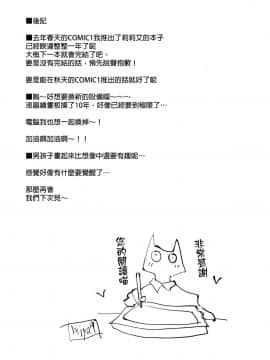 ■後記
■去年春天的COMIC1我推出了莉莉艾的本子
已經睽違整整一年了呢
大概下一本就會完結了吧。
要是沒有完結的話,預先說聲抱歉!
要是能在秋天的COMIC1推出的話就好了呢
■啊~好想要換新的設備喔~~~
液晶繪畫板撐了10年,好像已經要到極限了…
電腦我也想一起換掉~!
加油啊加油啊~!!
■男孩子畫起來比想像中還要有趣呢…
感覺好像有什麼要覺醒了…
那麼再會
我們下次見~
非常感謝
您的閱讀喵